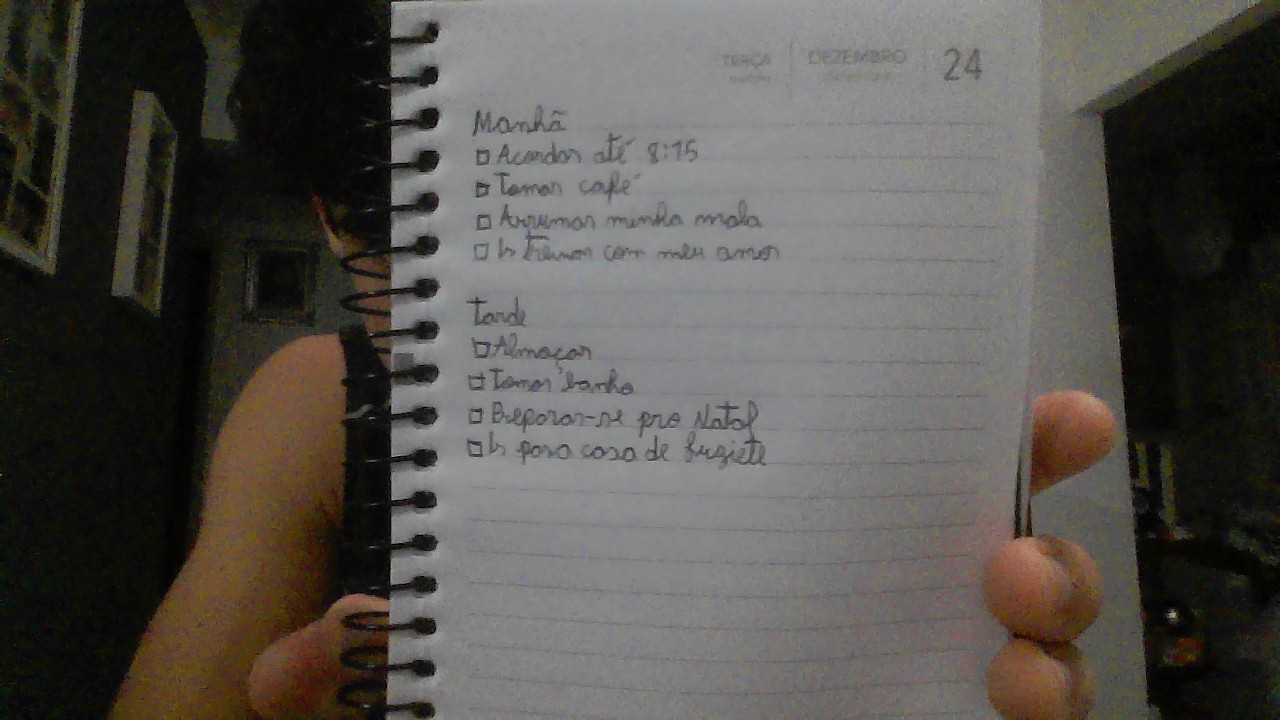 TERÇA DEZEMBRO 24
Manhã
Acordar até 8:15
Tomar café
Arrumar minha mala
Ir treinar com meu amor
Tarde
Almoçar
Tomar banho
Preparar-se pro Natal
Ir para casa de